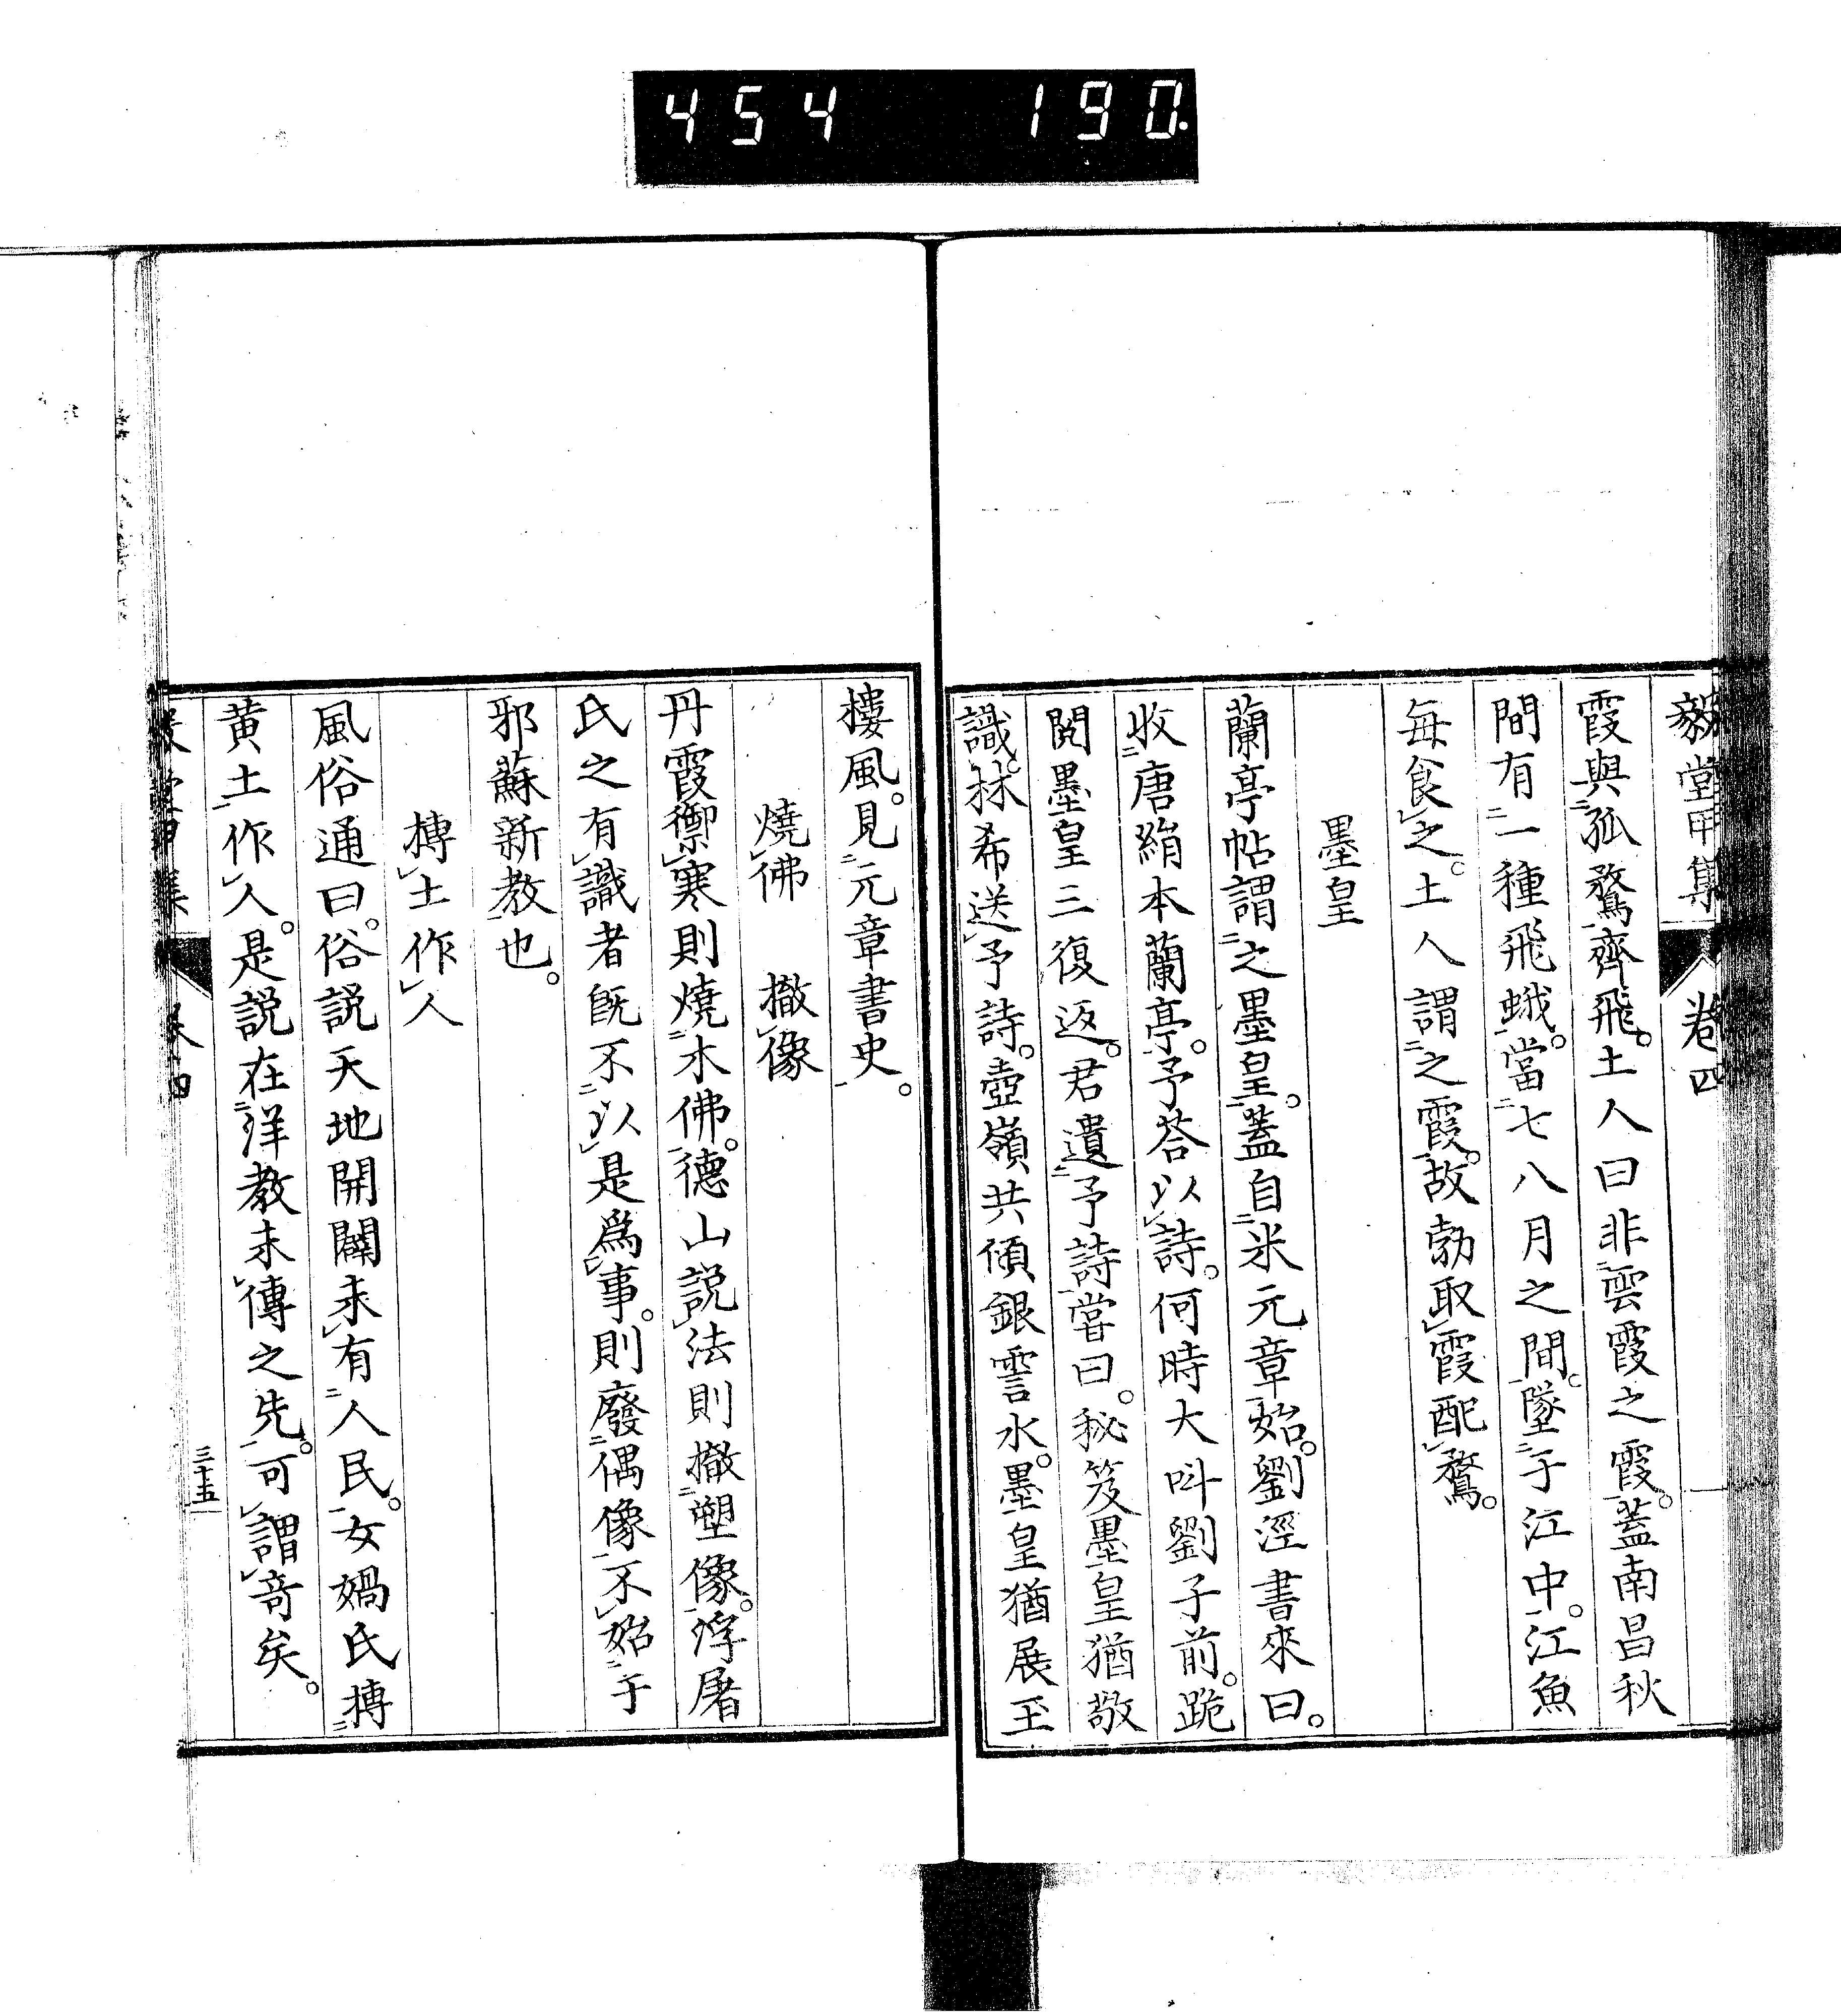 454 190.
毅堂甲集 卷四
霞與孤鶩齊飛。土人曰非雲霞之霞。蓋南昌秋
間有一種飛蛾。當七八月之間。墜于江中。江魚
每食之。土人謂之霞。故勃取霞配鶩。
墨皇
蘭亭帖謂之墨皇。蓋自米元章始。劉涇書來曰。
收唐絹本蘭亭。予荅以詩。何時大叫劉子前。跪
閱墨皇三復返。君遺予詩嘗曰。秘笈墨皇猶敬
識。林希送予詩。壺嶺共傾銀霅水。墨皇猶展玉
樓風。見元章書史。
燒佛 撤像
丹霞禦寒則燒木佛。德山説法則撤塑像。浮屠
氏之有識者既不以是爲事。則廢偶像不始于
邪蘇新教也。
摶土作人
風俗通曰。俗説天地開闢未有人民。女媧氏摶
黄土作人。是説在洋教未傳之先。可謂奇矣。
三十五